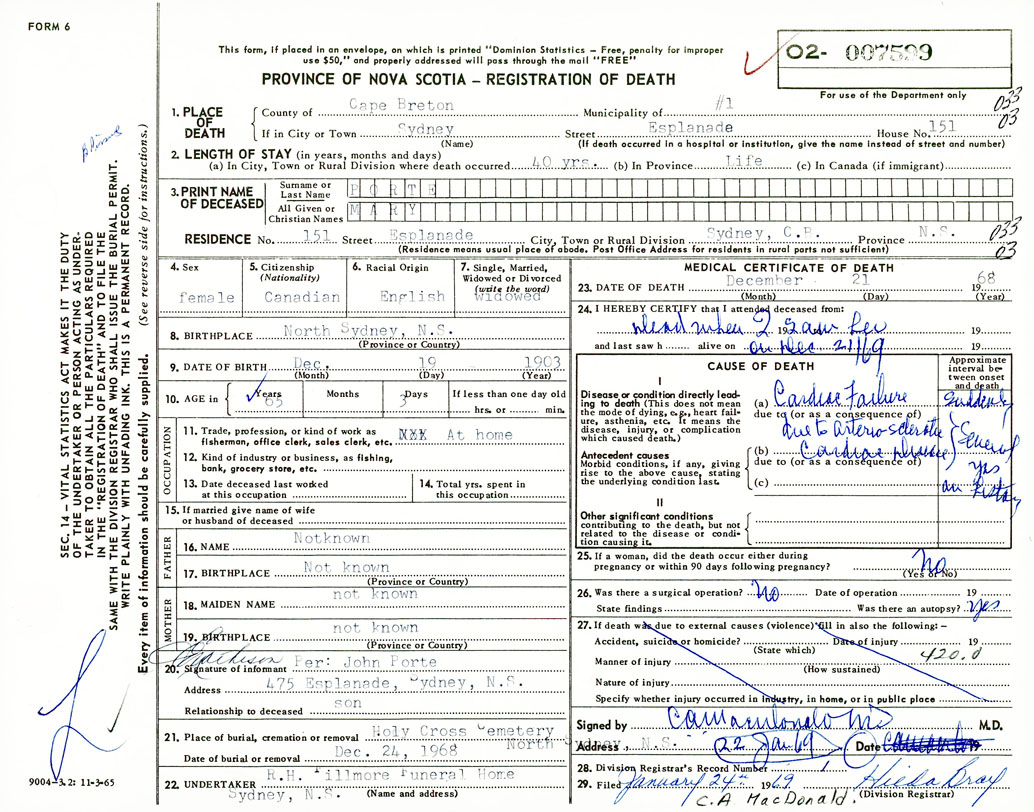 FORM 6
This form, if placed in an envelope, on which is printed "Dominion Statistics – Free, penalty for improper
use $50," and properly addressed will pass through the mail "FREE"
PROVINCE OF NOVA SCOTIA – REGISTRATION OF DEATH
02- 007599
For use of the Department only
033
03
1. PLACE OF DEATH
County of Cape Breton Municipality of #1
If in City or Town Sydney Street Esplanade House No. 151
(Name) (If death occurred in a hospital or institution, give the name instead of street and number)
2. LENGTH OF STAY (in years, months and days)
(a) In City, Town or Rural Division where death occurred 40 yrs. (b) In Province Life (c) In Canada (if immigrant)
3. PRINT NAME OF DECEASED
Surname or Last Name PORTE
All Given or Christian Names MARY
RESIDENCE No. 151 Street Esplanade City, Town or Rural Division Sydney, C.P. Province N.S.
(Residence means usual place of abode. Post Office Address for residents in rural parts not sufficient)
033
03
4. Sex
female
5. Citizenship
(Nationality)
Canadian
6. Racial Origin
English
7. Single, Married,
Widowed or Divorced
(write the word)
widowed
8. BIRTHPLACE North Sydney, N.S.
(Province or Country)
9. DATE OF BIRTH Dec. 19 1903
(Month) (Day) (Year)
10. AGE in Years Months Days If less than one day old
65 3 hrs. or min.
OCCUPATION
11. Trade, profession, or kind of work as
fisherman, office clerk, sales clerk, etc. XXX At home
12. Kind of industry or business, as fishing,
bank, grocery store, etc.
13. Date deceased last worked
at this occupation
14. Total yrs. spent in
this occupation
15. If married give name of wife
or husband of deceased
FATHER
16. NAME Notknown
17. BIRTHPLACE Not known
(Province or Country)
MOTHER
18. MAIDEN NAME not known
19. BIRTHPLACE not known
(Province or Country)
20. Signature of informant Per: John Porte
Address 475 Esplanade, Sydney, N.S.
Relationship to deceased son
21. Place of burial, cremation or removal Holy Cross Cemetery
North Sydney, N.S.
Date of burial or removal Dec. 24, 1968
22. UNDERTAKER R.H. Fillmore Funeral Home
Sydney, N.S. (Name and address)
MEDICAL CERTIFICATE OF DEATH
23. DATE OF DEATH December 21 1968
(Month) (Day) (Year)
24. I HEREBY CERTIFY that I attended deceased from:
dead when I saw her 19 19
and last saw h alive on on Dec 21/69 19
CAUSE OF DEATH
Approximate
interval be-
tween onset
and death
I
Disease or condition directly lead-
ing to death (This does not mean
the mode of dying, e.g., heart fail-
ure, asthenia, etc. It means the
disease, injury, or complication
which caused death.)
(a) Cardiac Failure Suddenly
due to (or as a consequence of)
due to Arterio-sclerotic
Antecedent causes
Morbid conditions, if any, giving
rise to the above cause, stating
the underlying condition last.
(b) Cardiac disease
due to (or as a consequence of)
(c)
General
yrs
on history
II
Other significant conditions
contributing to the death, but not
related to the disease or condi-
tion causing it.
25. If a woman, did the death occur either during
pregnancy or within 90 days following pregnancy? No
(Yes or No)
26. Was there a surgical operation? No Date of operation 19
State findings Was there an autopsy? yes
27. If death was due to external causes (violence) fill in also the following:–
Accident, suicide or homicide? Date of injury 19
(State which)
420.0
Manner of injury
(How sustained)
Nature of injury
Specify whether injury occurred in industry, in home, or in public place
Signed by M.D.
Address 22 Jan 69 Date 19
28. Division Registrar's Record Number 1
29. Filed January 24th 1969 Hilda Bray
(Division Registrar)
C.A MacDonald
SEC. 14 – VITAL STATISTICS ACT MAKES IT THE DUTY
OF THE UNDERTAKER OR PERSON ACTING AS UNDER-
TAKER TO OBTAIN ALL THE PARTICULARS REQUIRED
IN THE "REGISTRATION OF DEATH" AND FILE THE
SAME WITH THE DIVISION REGISTRAR WHO SHALL ISSUE THE BURIAL PERMIT.
WRITE PLAINLY WITH UNFADING INK. THIS IS A PERMANENT RECORD.
Every item of information should be carefully supplied. (See reverse side for instructions.)
9004–3.2: 11-3-65